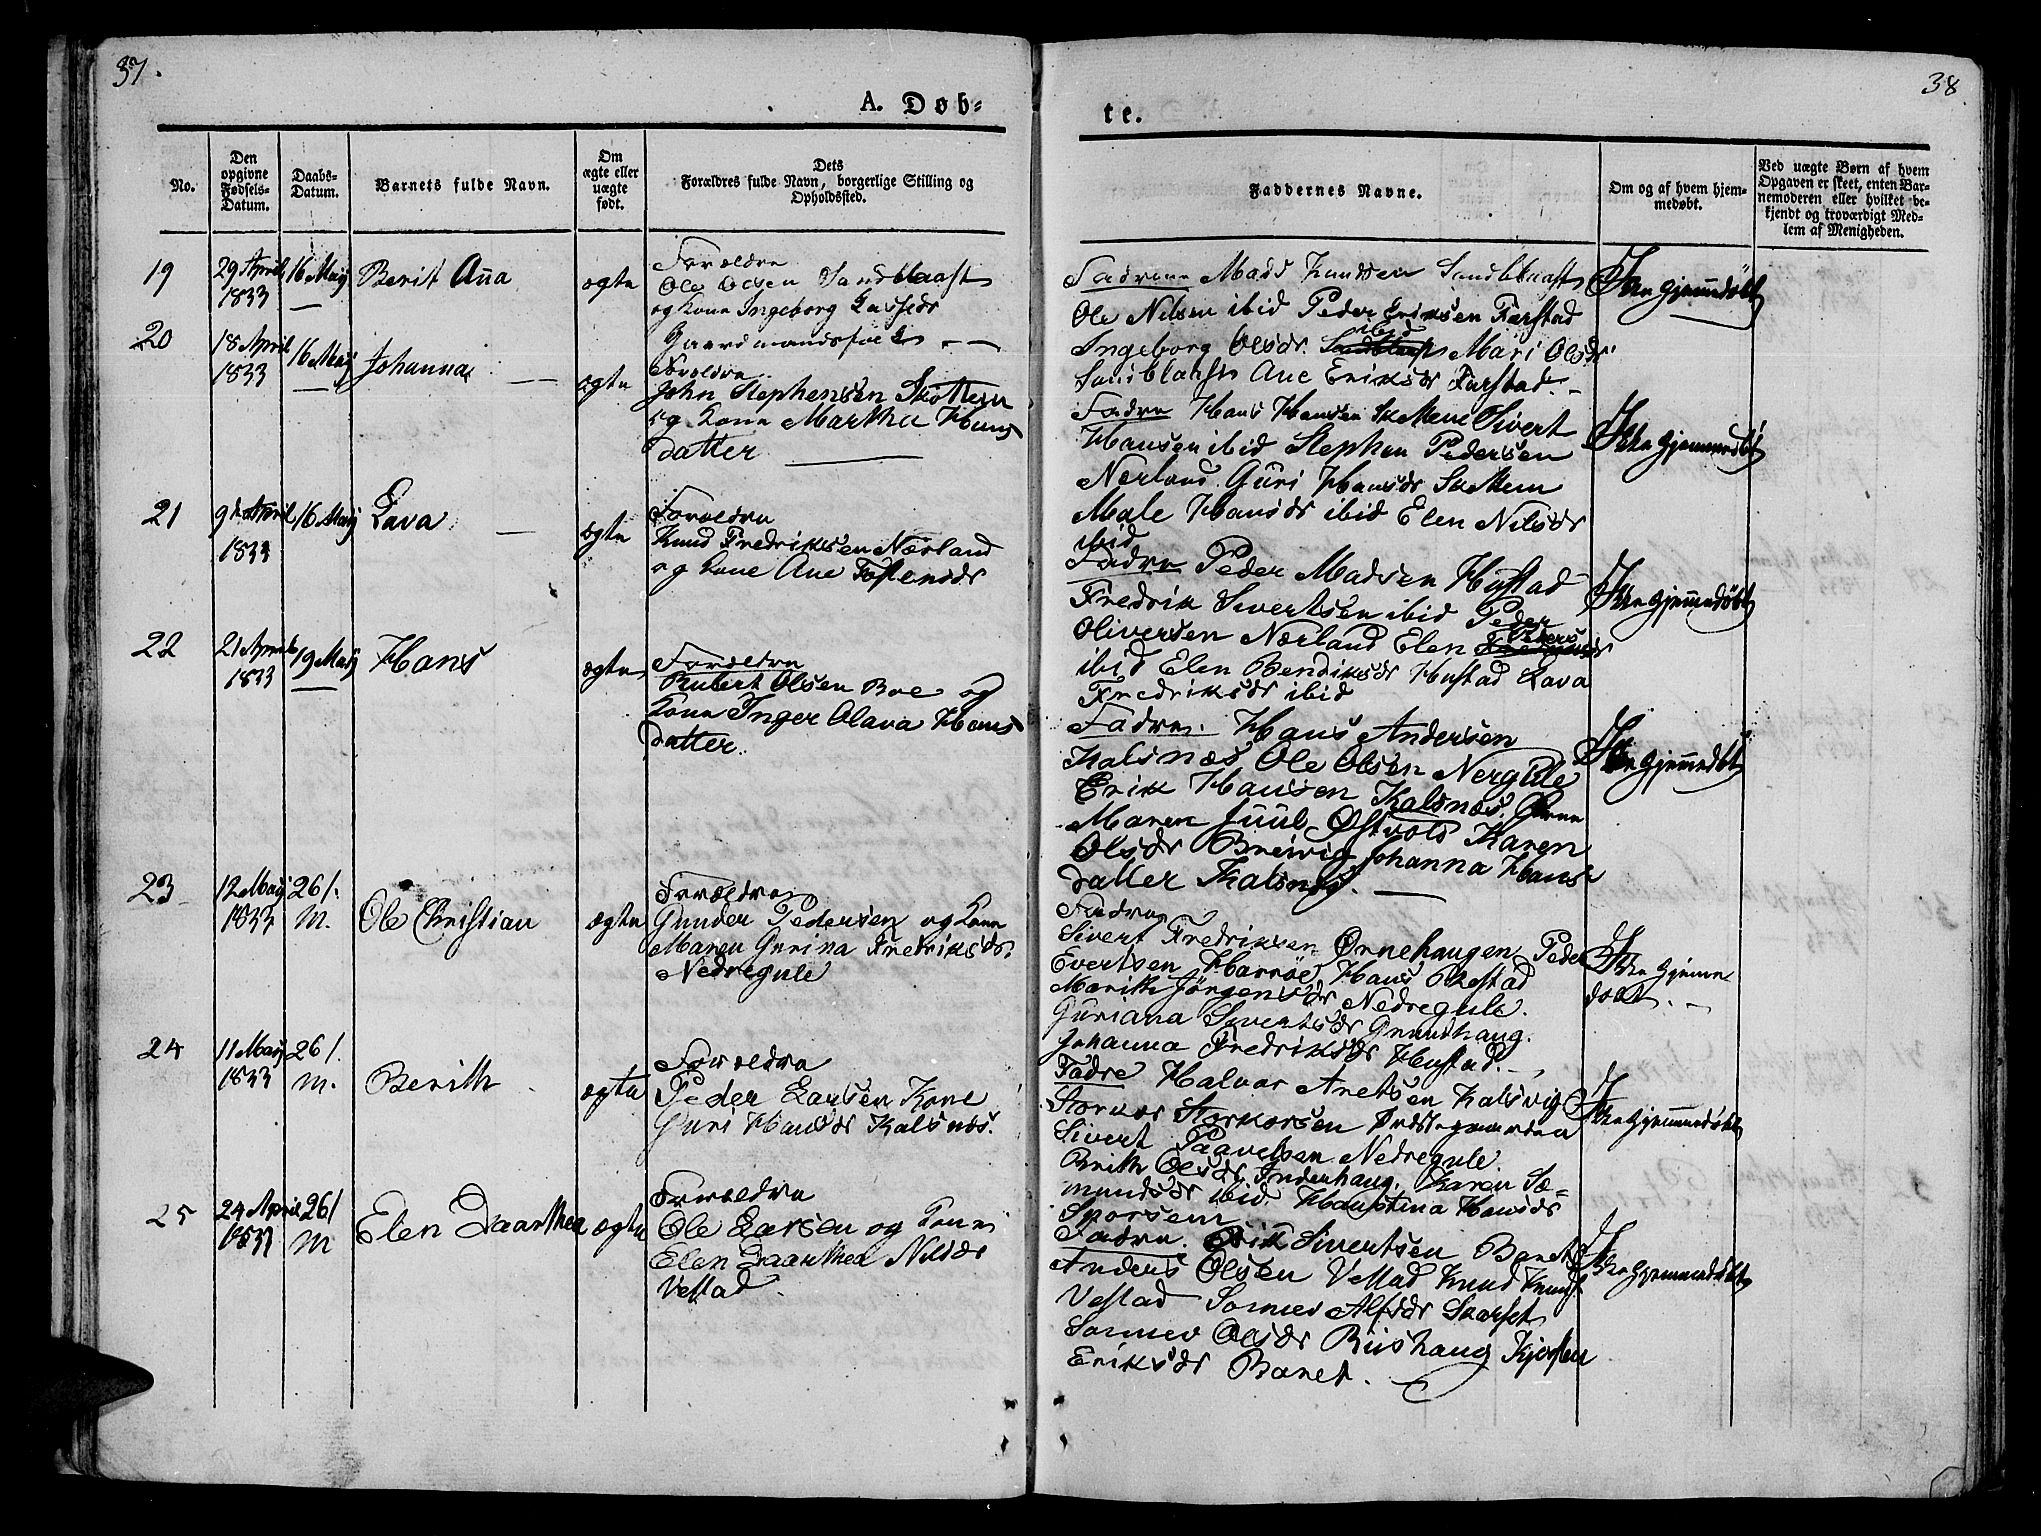 37.
38.
A. Døb-
te.
No.
Den opgivne Fødsels-Datum.
Daabs-Datum.
Barnets fulde Navn.
Om ægte eller uægte født.
Dets Forældres fulde Navn, borgerlige Stilling og Opholdssted.
Faddernes Navne.
Om og af hvem hjemmedøbt.
Ved uægte Børn af hvem Opgaven er skeet, enten Barnemoderen eller hvilket bekjendt og troværdigt Medlem af Menigheden.
19
29 April
1833
16 Maij
Berit Aña
ægte
Forældre
Ole Olsen Sandblaast
og Kone Ingeborg
Gaardmandsfolk
Fadrene Mads Knudsen Sandblaast
Ole Nilsen ibid Peder Eriksen Farstad
Ingeborg Olsdr. ibid Mari Olsdr
Sandblaast Ane Eriksdr Farstad
Ikke hjemmedøbt
20
18 April
1833
16 Maij
Johanna
ægte
Forældre
John Stephensen Skottem
og Kone Martha Hans
datter
Fadre Hans Hansen Skottem Sivert
Hansen ibid Stephen Pedersen
Nærland Guri Hansdr Skottem
Male Hansdr ibid Elen Nilsdr
ibid
Ikke hjemmedøbt
21
9de April
1833
16 Maij
Lava
ægte
Forældre
Knud Fredriksen Nærland
og Kone Ane Tostensdr
Fadre Peder Madsen Hustad
Fredrik Sivertsen ibid Peder
Oliversen Nærland Elen Peders dr
ibid Elen Bendiksdr Hustad Lava
Fredriksdr ibid
Ikke hjemmedøbt
22
21 April
1833
19 Maij
Hans
ægte
Forældre
Rubert Olsen Boe og
Kone Inger Olava Hans
datter.
Fadre. Hans Andersen
Kalsnæs Ole Olsen Nergule
Erik Hansen Kalsnæs.
Maren Juul Østvold Karen
Olsdr Breivig Johanna Hans
datter Kalsnæs.
Ikke hjemmedøbt
23
12 Maij
1833
26/.
M.
Ole Christian
ægte
Forældre
Gunder Pedersen og Kone
Maren Gurina Fredriksdr.
Nedregule
Fadre
Sivert Fredriksen Ørnehaugen Peder
Evertsen Harrøe Hans
Marith Jörgensdr Nedregule.
Guriana Sivertsdr
Johanna Fredriksdr Hustad.
Ikke hjemme
døbt.
24
11 Maij
1833
26/.
m.
Berith
ægte
Forældre
Peder Larsen Kone
Guri Hansdr Kalsnæs.
Fadre Halvor Aretsen Kalsvig
Storkor Storkorsen
Sivert Paavelsen Nedregule
Brith Olsdr Inderhaug. Karen Sæ=
mundsdr ibid Haustina Hansdr
Sporsem
Ikke hjemmedøbt
25
24 April
1833
26/
M
Elen Daarthea
ægte
Forældre
Ole Larsen og Kone
Elen Daarthea Nilsdr
Vestad.
Fadre. Erik Sivertsen Baret
Anders Olsen Vestad Knud Knuds
Vestad Sonnev Alfsdr Skarset
Sonnev Olsdr Riishaug
Eriksdr Baret.
Ikke hjemmedøbt